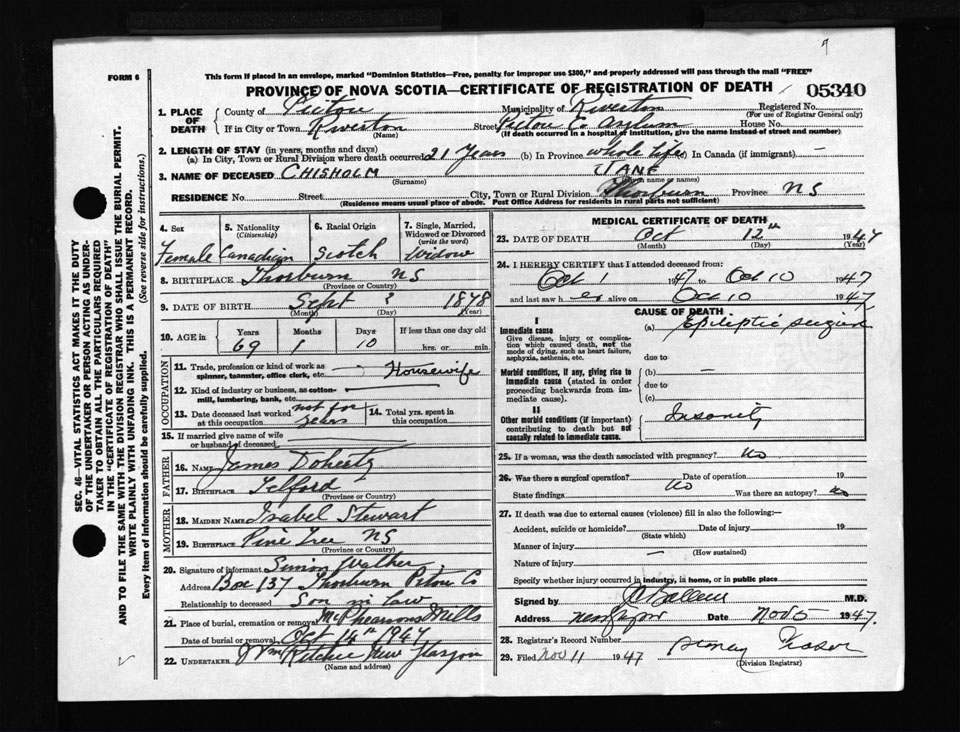 9
FORM 6
This form if placed in an envelope, marked "Dominion Statistics—Free, penalty for improper use $300," and properly addressed will pass through the mail "FREE"
PROVINCE OF NOVA SCOTIA—CERTIFICATE OF REGISTRATION OF DEATH 05340
1. PLACE OF DEATH County of Pictou Municipality of Riverton Registered No.
(For use of Registrar General only)
If in City or Town Riverton (Name) Street Pictou Co Asylum House No.
(If death occurred in a hospital or institution, give the name instead of street and number)
2. LENGTH OF STAY (in years, months and days)
(a) In City, Town or Rural Division where death occurred 21 Years (b) In Province whole life (c) In Canada (if immigrant) —
3. NAME OF DECEASED CHISHOLM (Surname) JANE (Given name or names)
RESIDENCE No. Street City, Town or Rural Division Thorburn Province NS
(Residence means usual place of abode. Post Office Address for residents in rural parts not sufficient)
4. Sex 5. Nationality (Citizenship) 6. Racial Origin 7. Single, Married, Widowed or Divorced (write the word)
Female Canadian Scotch Widow
8. BIRTHPLACE Thorburn NS
(Province or Country)
9. DATE OF BIRTH Sept ? 1878
(Month) (Day) (Year)
10. AGE in Years Months Days If less than one day old
69 1 10 hrs. or min.
OCCUPATION
11. Trade, profession or kind of work as spinner, teamster, office clerk, etc. — Housewife
12. Kind of industry or business, as cotton-mill, lumbering, bank, etc.
13. Date deceased last worked at this occupation not for years 14. Total yrs. spent in this occupation
15. If married give name of wife or husband of deceased
FATHER
16. NAME James Doherty
17. BIRTHPLACE Telford
(Province or Country)
MOTHER
18. MAIDEN NAME Isabel Stewart
19. BIRTHPLACE Pine Tree NS
(Province or Country)
20. Signature of informant Simon Walker
Address Box 137 Thorburn Pictou Co
Relationship to deceased Son in law
21. Place of burial, cremation or removal McPhearsons Mills
Date of burial or removal Oct 14th 1947
22. UNDERTAKER J Wm Ritchie New Glasgow
(Name and address)
MEDICAL CERTIFICATE OF DEATH
23. DATE OF DEATH Oct 12th 1947
(Month) (Day) (Year)
24. I HEREBY CERTIFY that I attended deceased from:
Oct 1 1947 to Oct 10 1947
and last saw her alive on Oct 10 1947
CAUSE OF DEATH
I
Immediate cause (a) Epileptic seizure
Give disease, injury or complication which caused death, not the mode of dying, such as heart failure, asphyxia, asthenia, etc.
due to
Morbid conditions, if any, giving rise to immediate cause (stated in order proceeding backwards from immediate cause). (b) —
due to
(c)
II
Other morbid conditions (if important) contributing to death but not causally related to immediate cause. Insanity
25. If a woman, was the death associated with pregnancy? No
26. Was there a surgical operation? No Date of operation 19
State findings Was there an autopsy? No
27. If death was due to external causes (violence) fill in also the following:—
Accident, suicide or homicide? Date of injury 19
(State which)
Manner of injury —
(How sustained)
Nature of injury
Specify whether injury occurred in industry, in home, or in public place
Signed by M.D.
Address New Glasgow Date Nov 5 1947.
28. Registrar's Record Number
29. Filed Nov 11 1947 Fraser
(Division Registrar)
SEC. 46—VITAL STATISTICS ACT MAKES IT THE DUTY
OF THE UNDERTAKER OR PERSON ACTING AS UNDER-
TAKER TO OBTAIN ALL THE PARTICULARS REQUIRED
IN "CERTIFICATE OF REGISTRATION OF DEATH"
AND TO FILE THE SAME WITH THE DIVISION REGISTRAR WHO SHALL ISSUE THE BURIAL PERMIT.
WRITE PLAINLY WITH UNFADING INK. THIS IS A PERMANENT RECORD.
Every item of information should be carefully supplied. (See reverse side for instructions.)